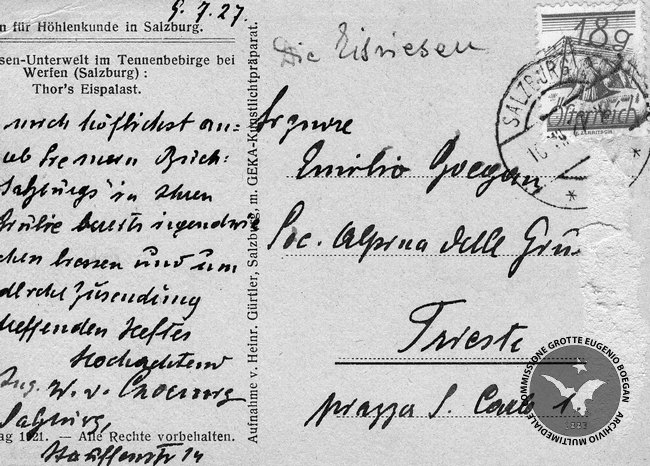 9.7.27.
n für Höhlenkunde in Salzburg.
sen-Unterwelt im Tennengebirge bei
Werfen (Salzburg) :
Thor's Eispalast.
mich höflichst an-
ob Sie mein Buch:
Salzburgs" in Ihren
bereits irgendwie
chen liessen und um
Zusendung
treffenden Heftes
Hochachtend
Ing. W. v. Czoernig
Salzburg,
Stauffenstr 14
ag 1921. — Alle Rechte vorbehalten.
Aufnahme v. Heinr. Gürtler, Salzburg, m. GEKA-Kunstlichtpräparat.
Die Eisriesen
18g
Österreich
SALZBURG
Signore
Emilio Boegan
Soc. Alpina delle Giu
Trieste
piazza S. Carlo 1
COMMISSIONE GROTTE EUGENIO BOEGAN
1883
ARCHIVIO MULTIMEDIALE